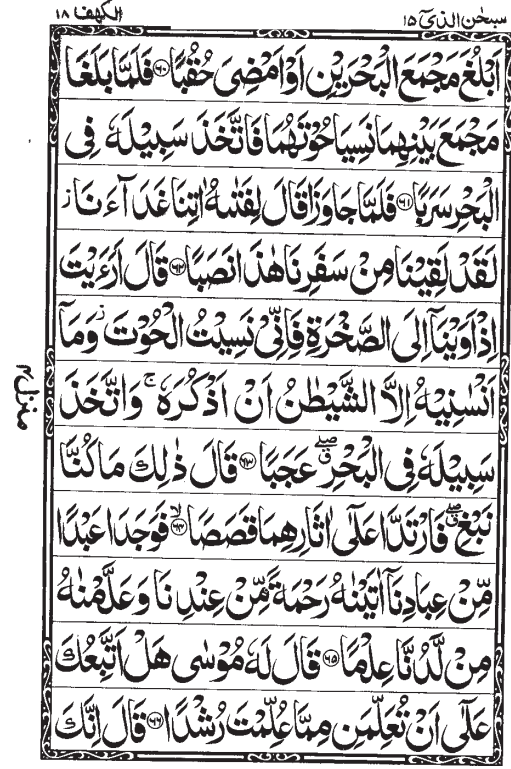 سبحٰن الذی ۱۵
الکهف ۱۸
اَبْلُغَ مَجْمَعَ الْبَحْرَيْنِ اَوْ اَمْضِیَ حُقُبًا ﴿۶۰﴾ فَلَمَّا بَلَغَا
مَجْمَعَ بَيْنِهِمَا نَسِيَا حُوْتَهُمَا فَاتَّخَذَ سَبِيْلَهٗ فِی
الْبَحْرِ سَرَبًا ﴿۶۱﴾ فَلَمَّا جَاوَزَا قَالَ لِفَتٰىهُ اٰتِنَا غَدَآءَنَا ز
لَقَدْ لَقِيْنَا مِنْ سَفَرِنَا هٰذَا نَصَبًا ﴿۶۲﴾ قَالَ اَرَءَيْتَ
اِذْ اَوَيْنَآ اِلَی الصَّخْرَةِ فَاِنِّیْ نَسِيْتُ الْحُوْتَ ز وَمَآ
اَنْسٰنِيْهُ اِلَّا الشَّيْطٰنُ اَنْ اَذْكُرَهٗ ۚ وَاتَّخَذَ
سَبِيْلَهٗ فِی الْبَحْرِ ۖق عَجَبًا ﴿۶۳﴾ قَالَ ذٰلِكَ مَا كُنَّا
نَبْغِ ۖق فَارْتَدَّا عَلٰٓی اٰثَارِهِمَا قَصَصًا ﴿۶۴﴾ ۙ فَوَجَدَا عَبْدًا
مِّنْ عِبَادِنَآ اٰتَيْنٰهُ رَحْمَةً مِّنْ عِنْدِنَا وَعَلَّمْنٰهُ
مِنْ لَّدُنَّا عِلْمًا ﴿۶۵﴾ قَالَ لَهٗ مُوْسٰی هَلْ اَتَّبِعُكَ
عَلٰٓی اَنْ تُعَلِّمَنِ مِمَّا عُلِّمْتَ رُشْدًا ﴿۶۶﴾ قَالَ اِنَّكَ
منزل ۴